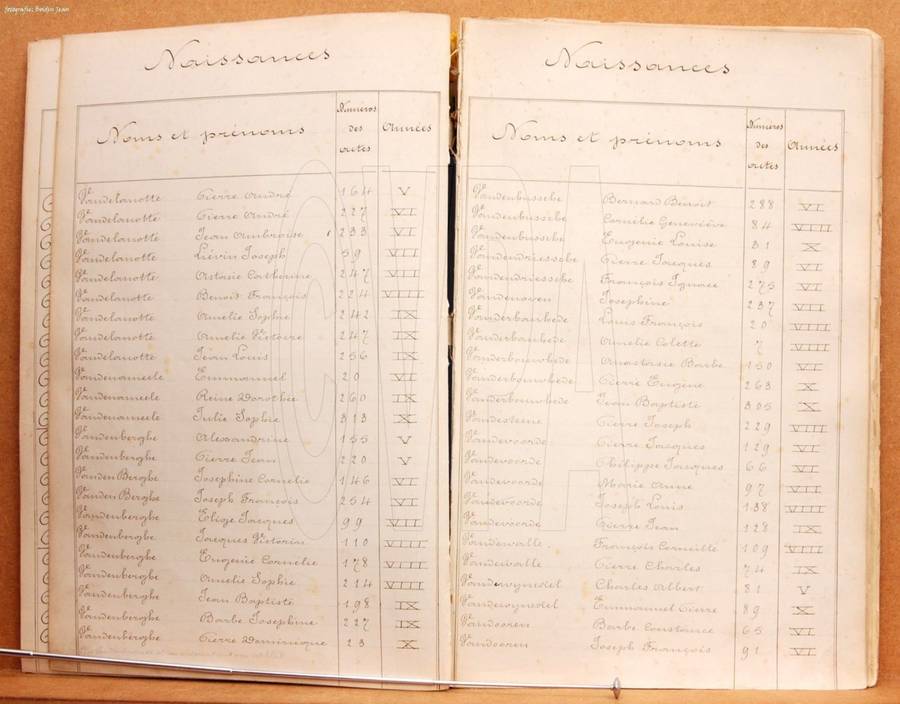 fotografies Boidin Jean
Naissances
Noms et prénoms Numéros des actes Années
Vandelanotte Pierre André 164 V
Vandelanotte Pierre André 227 VI
Vandelanotte Jean Ambroise 233 VI
Vandelanotte Liévin Joseph 59 VII
Vandelanotte Catherine 247 VIII
Vandelanotte Benoit François 224 VIIII
Vandelanotte Amelie Sophie 242 IX
Vandelanotte Amelie Victoire 247 IX
Vandelanotte Jean Louis 256 IX
Vandenameele Emmanuel 20 VII
Vandenameele Reine Dorothée 260 IX
Vandenameele Julie Sophie 313 X
Vandenberghe Alexandrine 155 V
Vandenberghe Pierre Jean 220 V
Vanden Berghe Josephine Cornelie 146 VI
Vanden Berghe Joseph François 254 VI
Vandenberghe Jacques 99 VII
Vandenberghe Jacques Victorin 110 VIIII
Vandenberghe Eugenie Cornelie 178 VIIII
Vandenberghe Amelie Sophie 214 VIIII
Vandenberghe Jean Baptiste 198 IX
Vandenberghe Barbe Josephine 227 IX
Vandenberghe Pierre Dominique 23 X
Naissances
Noms et prénoms Numéros des actes Années
Vandenbussche Bernard Benoit 288 VI
Vandenbussche Cornélie Geneviève 84 VIIII
Vandenbussche Eugenie Louise 31 X
Vandendriessche Pierre Jacques 89 VI
Vandendriessche François Ignace 275 VI
Vandenoven Josephine 237 VII
Vanderbauhede Louis François 20 VIIII
Vanderbauhede Amelie Colette 7 VIIII
Vanderbouwhede Anastasie Barbe 150 VI
Vanderbouwhede Pierre Eugene 263 X
Vanderbouwhede Jean Baptiste 305 X
Vandesteene Pierre Joseph 229 VIIII
Vandevoorde Pierre Jacques 129 VI
Vandevoorde Philippe Jacques 66 VI
Vandevoorde Marie Anne 97 VII
Vandevoorde Joseph Louis 138 VIIII
Vandevoorde Pierre Jean 128 IX
Vandewalle François Corneille 109 VIIII
Vandewalle Pierre Charles 74 IX
Vandewynckel Charles Albert 81 V
Vandewynckel Emmanuel Pierre 89 X
Vandooren Barbe Constance 65 VI
Vandooren Joseph François 91 VI